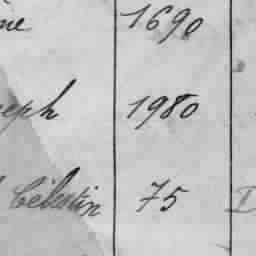 me 1690
seph 1980
Célestin 75 I